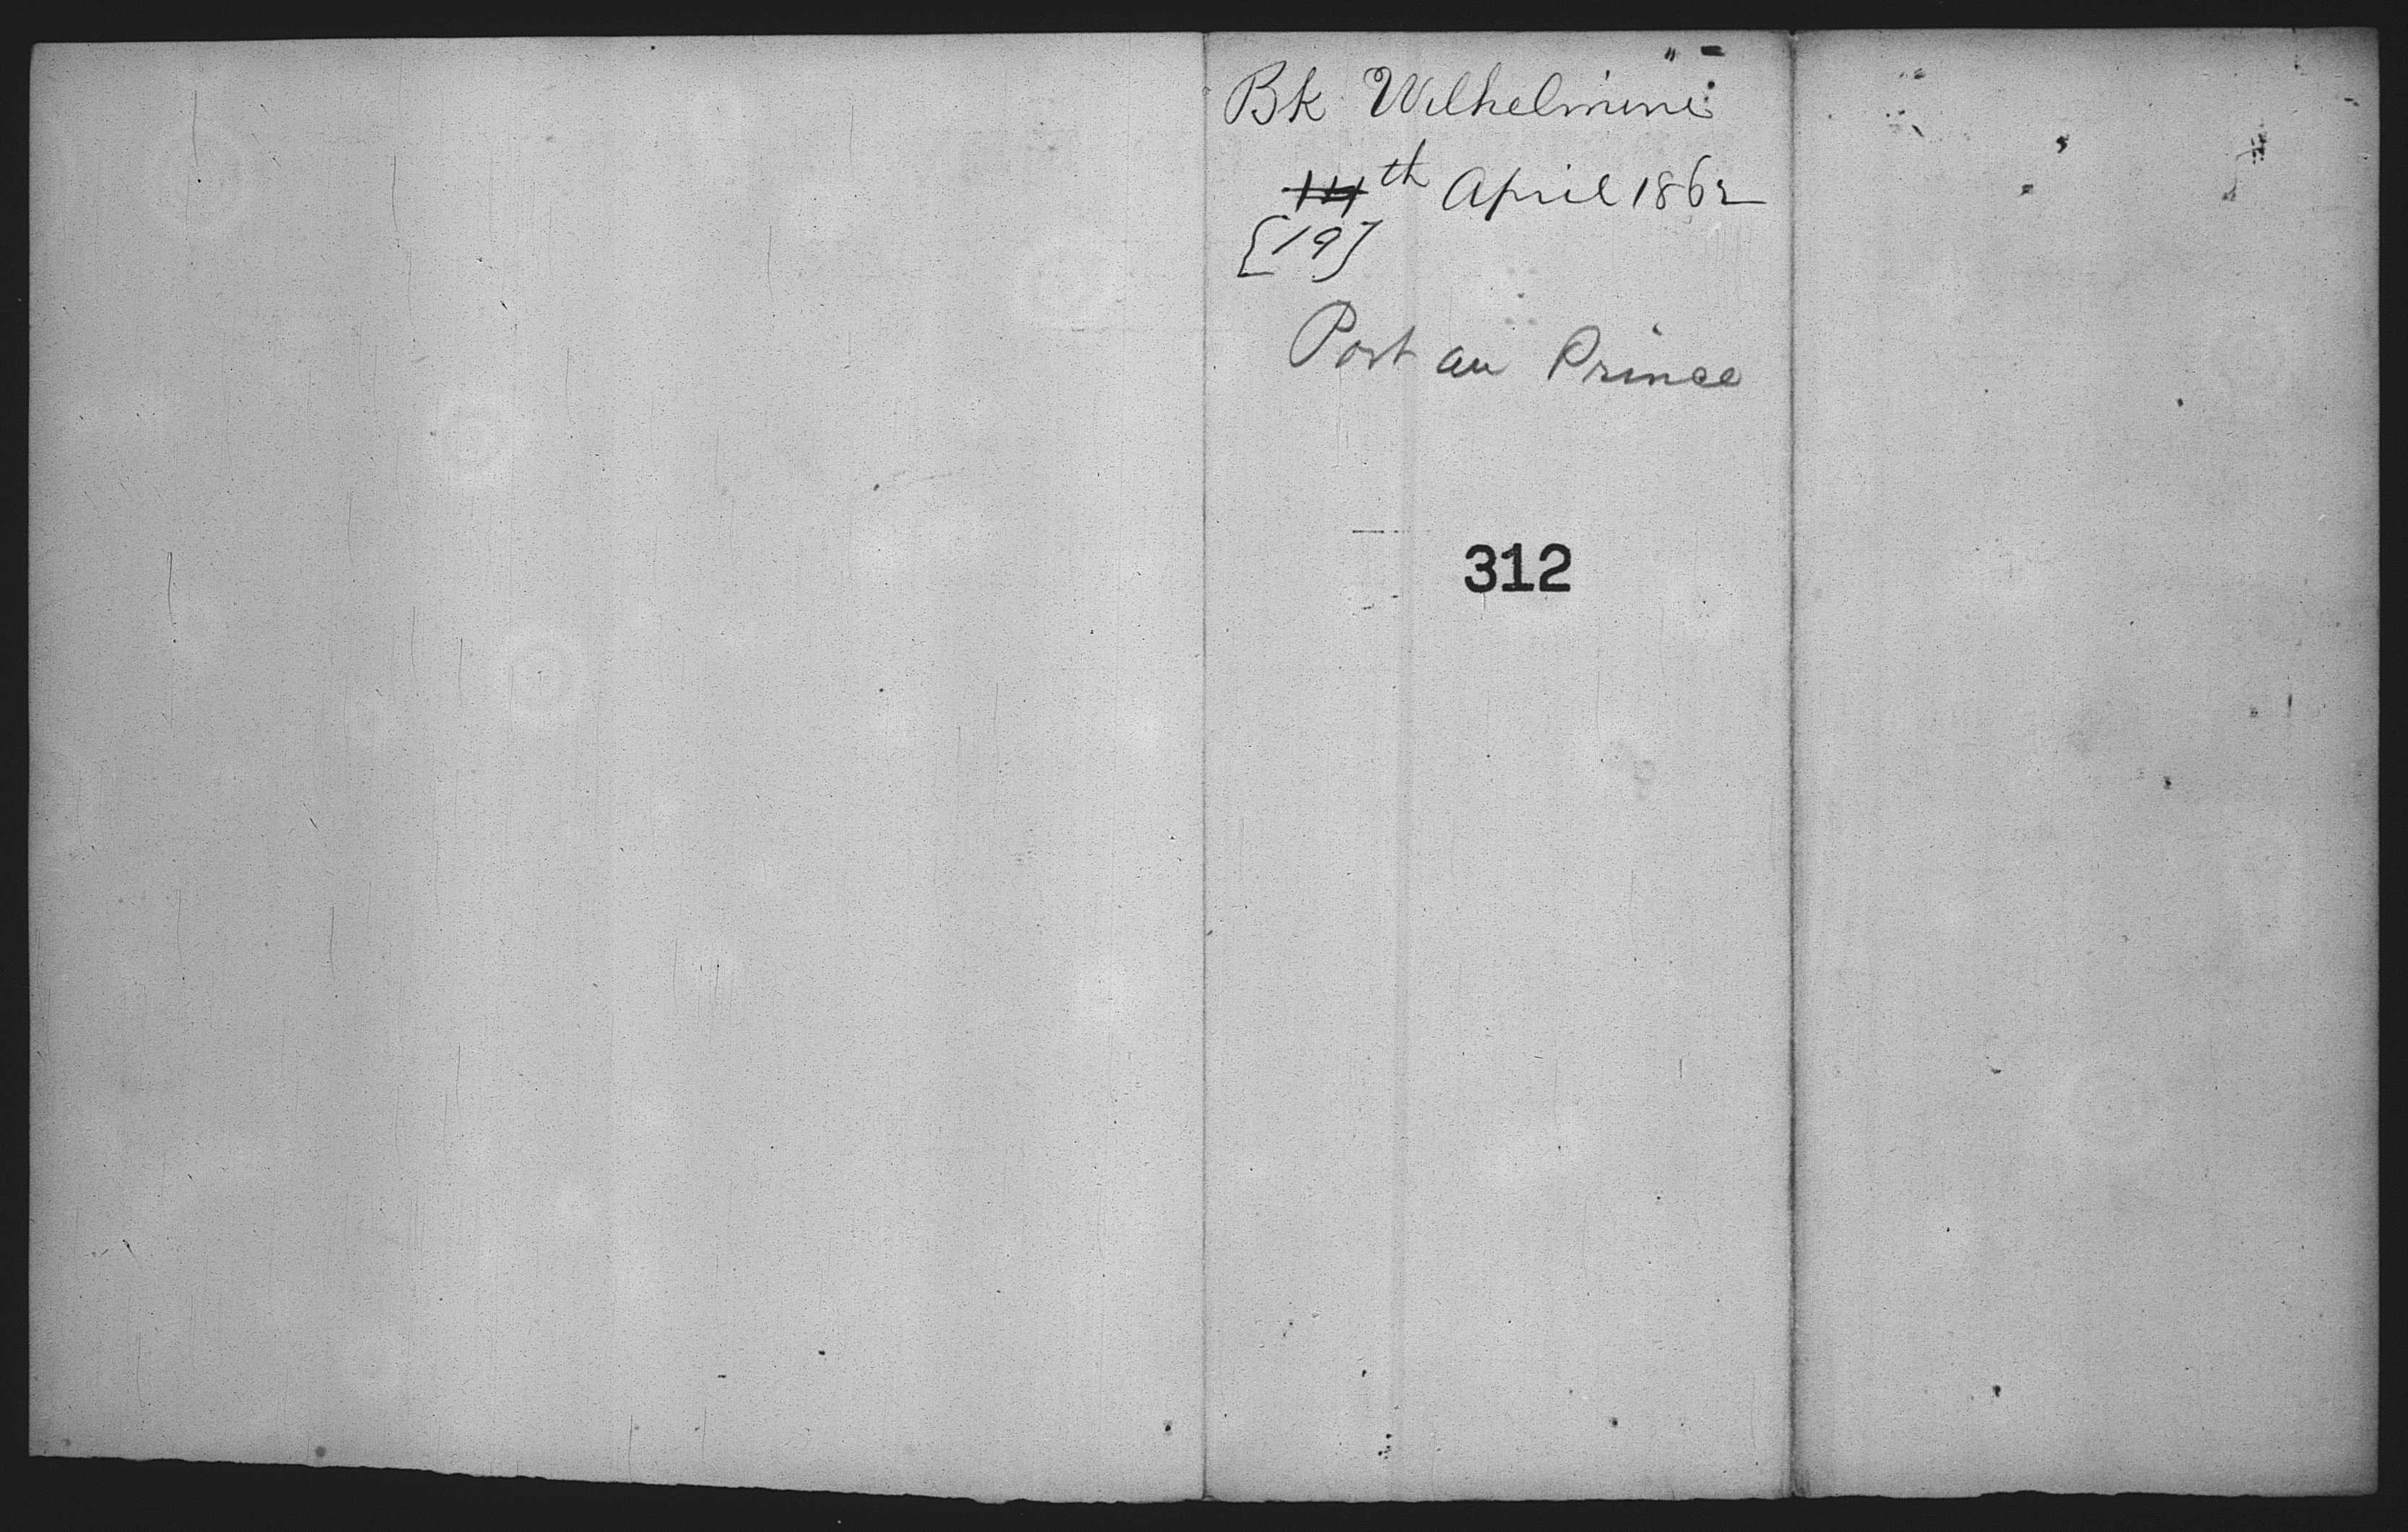 Bk Wilhelmine
14th April 1862
[19]
Port au Prince
312